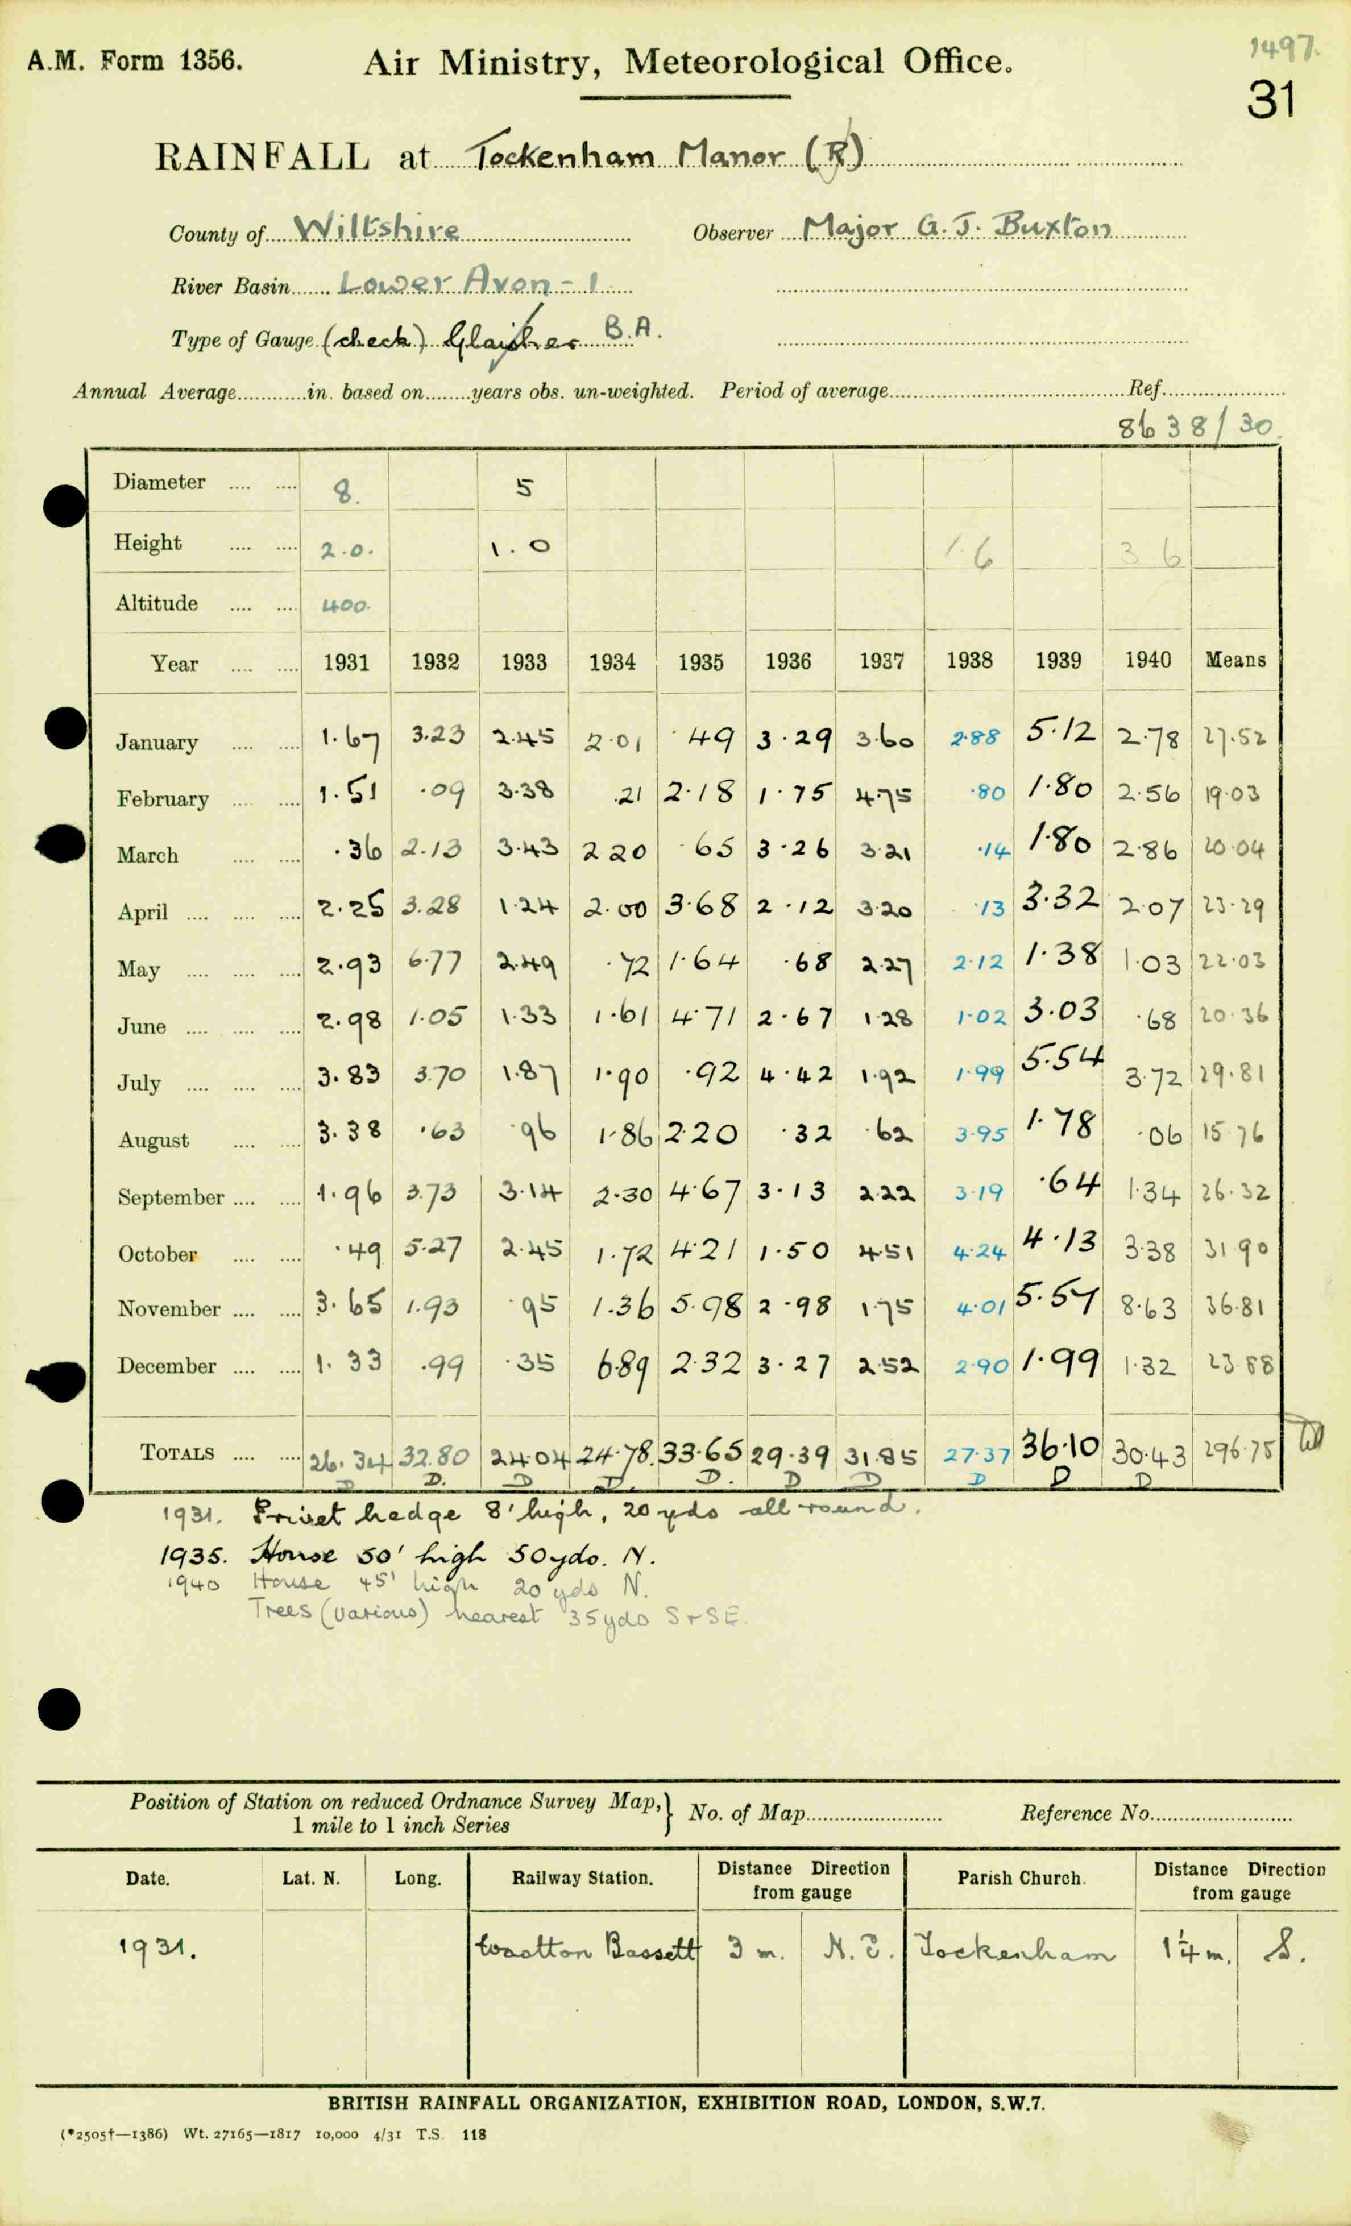 1497.
A.M. Form 1356. Air Ministry, Meteorological Office.
31
RAINFALL at Tockenham Manor (R)
County of Wiltshire Observer Major G. J. Buxton
River Basin Lower Avon - 1
Type of Gauge (check) Glaisher B.A.
Annual Average in. based on years obs. un-weighted. Period of average Ref.
8638/30
Diameter 8. 5
Height 2.0. 1.0 1.6 3 6
Altitude 400.
Year 1931 1932 1933 1934 1935 1936 1937 1938 1939 1940 Means
January 1.67 3.23 2.45 2.01 .49 3.29 3.60 2.88 5.12 2.78 27.52
February 1.51 .09 3.38 .21 2.18 1.75 4.75 .80 1.80 2.56 19.03
March .36 2.13 3.43 2 20 .65 3.26 3.21 .14 1.80 2.86 20.04
April 2.25 3.28 1.24 2.00 3.68 2.12 3.20 .13 3.32 2.07 23.29
May 2.93 6.77 2.49 .72 1.64 .68 2.27 2.12 1.38 1.03 22.03
June 2.98 1.05 1.33 1.61 4.71 2.67 1.28 1.02 3.03 .68 20.36
July 3.83 3.70 1.87 1.90 .92 4.42 1.92 1.99 5.54 3.72 29.81
August 3.38 .63 .96 1.86 2.20 .32 .62 3.95 1.78 .06 15.76
September 1.96 3.73 3.14 2.30 4.67 3.13 2.22 3.19 .64 1.34 26.32
October .49 5.27 2.45 1.72 4.21 1.50 4.51 4.24 4.13 3.38 31.90
November 3.65 1.93 .95 1.36 5.98 2.98 1.75 4.01 5.57 8.63 36.81
December 1.33 .99 .35 6.89 2.32 3.27 2.52 2.90 1.99 1.32 23.88
TOTALS 26.34 32.80 24.04 24.78. 33.65 29.39 31.85 27.37 36.10 30.43 296.75
D D. D D. D. D D D D D
1931. Privet hedge 8' high, 20 yds all round.
1935. House 50' high 50yds. N.
1940 House 45' high 20 yds N.
Trees (various) nearest 35yds S + SE.
Position of Station on reduced Ordnance Survey Map,} No. of Map Reference No.
1 mile to 1 inch Series
Date. Lat. N. Long. Railway Station. Distance Direction from gauge Parish Church. Distance Direction from gauge
1931. Wootton Bassett 3 m. N.E. Tockenham 1¼ m. S.
BRITISH RAINFALL ORGANIZATION, EXHIBITION ROAD, LONDON, S.W.7.
(*2505†—1386) Wt. 27165—1817 10,000 4/31 T.S. 118